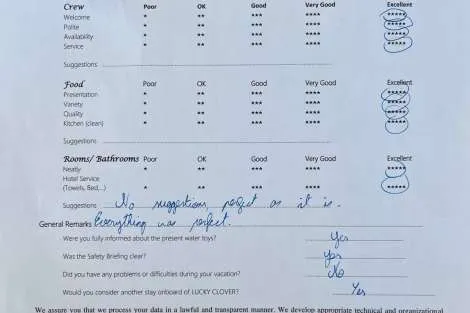 Crew Poor OK Good Very Good Excellent
Welcome * ** *** **** *****
Polite * ** *** **** *****
Availability * ** *** **** *****
Service * ** *** **** *****
Suggestions
Food Poor OK Good Very Good Excellent
Presentation * ** *** **** *****
Variety * ** *** **** *****
Quality * ** *** **** *****
Kitchen (clean) * ** *** **** *****
Suggestions
Rooms/ Bathrooms Poor OK Good Very Good Excellent
Neatly * ** *** **** *****
Hotel Service
(Towels, Bed,...) * ** *** **** *****
Suggestions No suggestions, perfect as it is.
General Remarks Everything was perfect.
Were you fully informed about the present water toys? Yes
Was the Safety Briefing clear? Yes
Did you have any problems or difficulties during your vacation? No
Would you consider another stay onboard of LUCKY CLOVER? Yes
We assure you that we process your data in a lawful and transparent manner. We develop appropriate technical and organizational